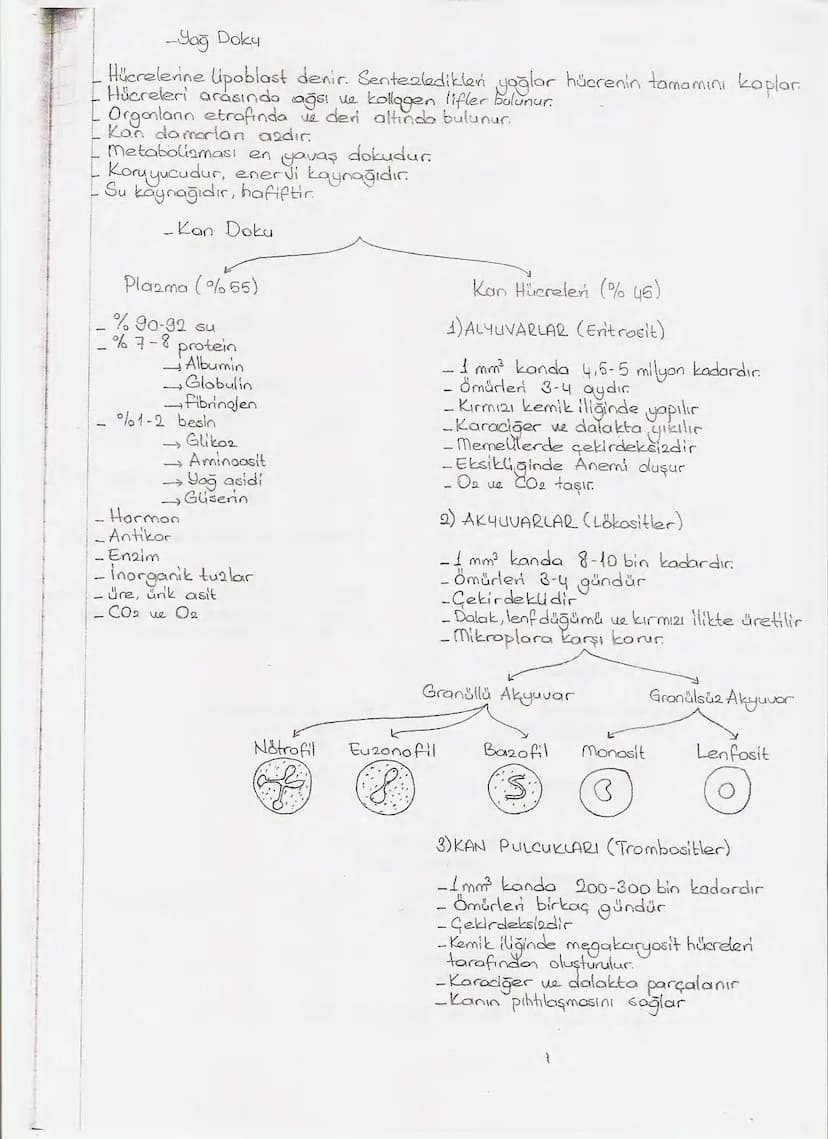 -Yağ Doku
- Hücrelerine lipoblast denir. Sentezledikleri yağlar hücrenin tamamını kaplar.
- Hücreleri arasında ağsı ve kollagen lifler bulunur.
- Organların etrafında ve deri altında bulunur.
- Kan damarları azdır.
- Metabolizması en yavaş dokudur.
- Koruyucudur, enerji kaynağıdır.
- Su kaynağıdır, hafiftir.
- Kan Doku
Plazma (%55)
- % 90-92 su
- % 7-8 protein
→ Albumin
→ Globulin
→ Fibrinojen
- %1-2 besin
→ Glikoz
→ Aminoasit
→ Yağ asidi
→ Gliserin
- Hormon
- Antikor
- Enzim
- İnorganik tuzlar
- Üre, ürik asit
- CO₂ ve O₂
Kan Hücreleri (% 45)
1) ALYUVARLAR (Eritrosit)
- 1 mm³ kanda 4,5-5 milyon kadardır.
- Ömürleri 3-4 aydır.
- Kırmızı kemik iliğinde yapılır
- Karaciğer ve dalakta yıkılır
- Memelilerde çekirdeksizdir
- Eksikliğinde Anemi oluşur
- O₂ ve CO₂ taşır.
2) AKYUVARLAR (Lökositler)
- 1 mm³ kanda 8-10 bin kadardır.
- Ömürleri 3-4 gündür
- Çekirdeklidir
- Dalak, lenf düğümü ve kırmızı ilikte üretilir
- Mikroplara karşı korur.
Granüllü Akyuvar Granülsüz Akyuvar
Nötrofil Euzonofil Bazofil Monosit Lenfosit
3) KAN PULCUKLARI (Trombositler)
- 1 mm³ kanda 200-300 bin kadardır
- Ömürleri birkaç gündür
- Çekirdeksizdir
- Kemik iliğinde megakaryosit hücreleri
tarafından oluşturulur.
- Karaciğer ve dalakta parçalanır
- Kanın pıhtılaşmasını sağlar
1